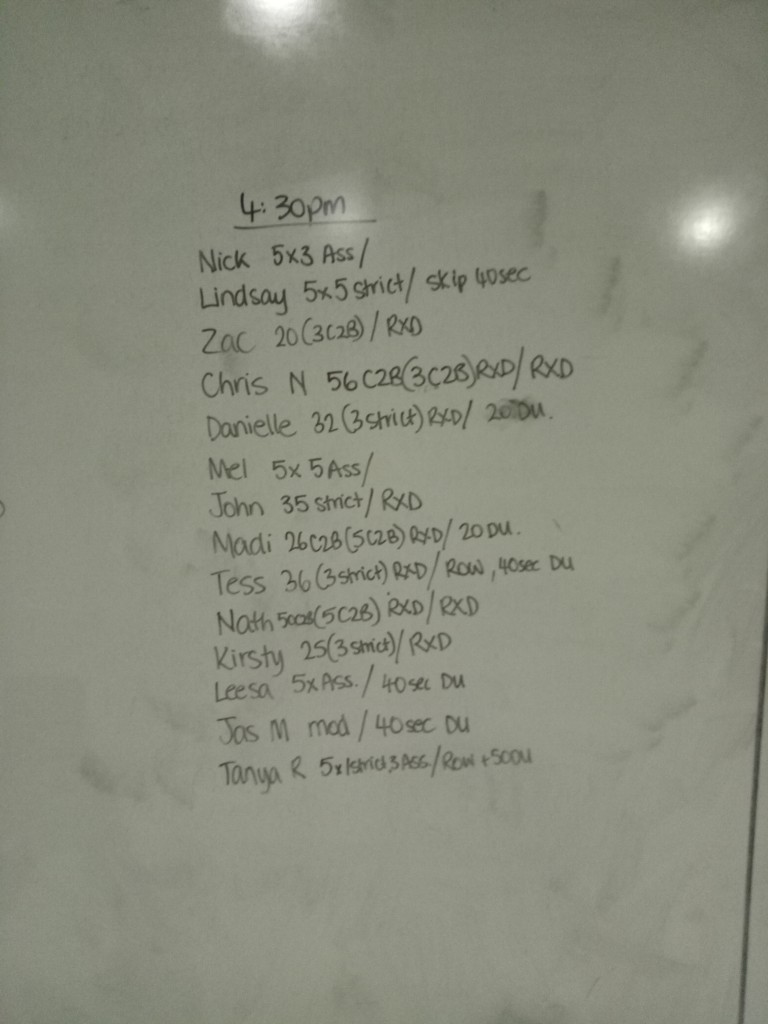 4:30pm
Nick 5x3 Ass/
Lindsay 5x5 strict/ skip 40sec
Zac 20(3C2B)/RXD
Chris N 56 C2B(3C2B)RXD/RXD
Danielle 32(3strict)RXD/ 20 DU.
Mel 5x5 Ass/
John 35 strict/RXD
Madi 26C2B(5C2B)RXD/20 DU.
Tess 36(3strict)RXD/Row, 40sec DU
Nath (5C2B) RXD/RXD
Kirsty 25(3strict)/RXD
Leesa 5xAss./40sec DU
Jas M mod/40sec DU
Tanya R 5x1strict3Ass./Row+50DU